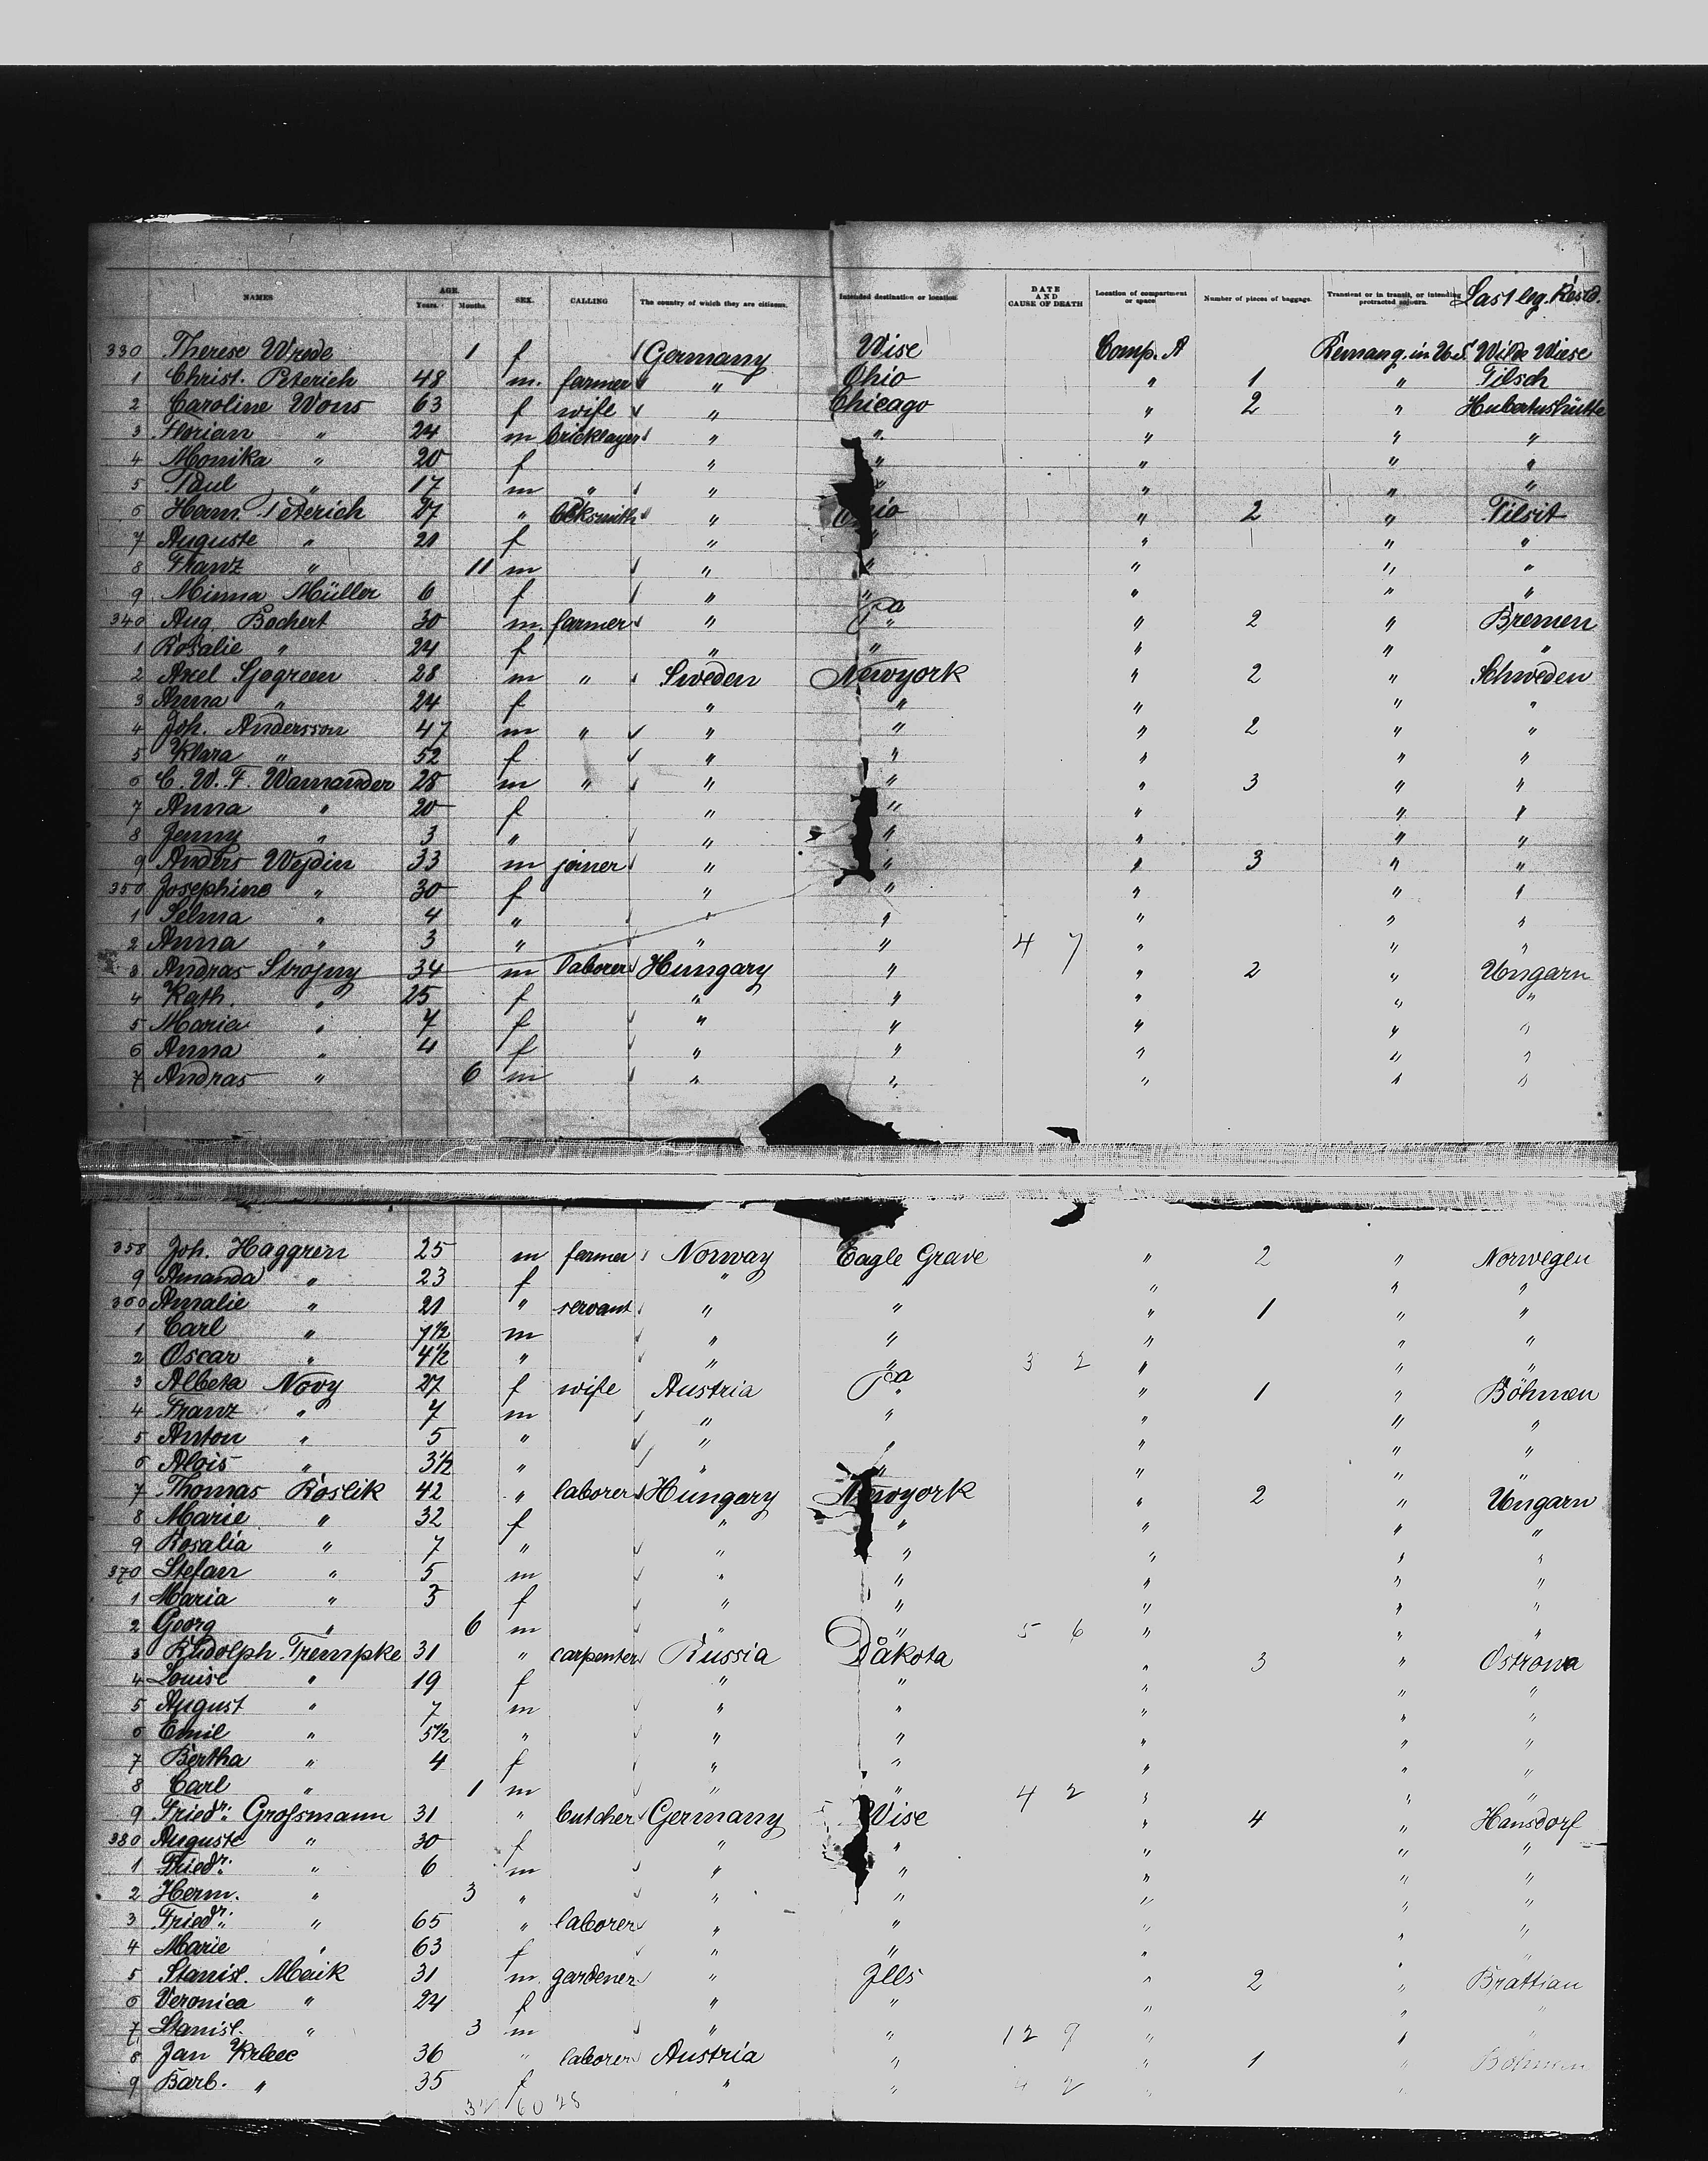 NAMES AGE. Years. Months. SEX. CALLING The country of which they are citizens. Intended destination or location. DATE AND CAUSE OF DEATH Location of compartment or space Number of pieces of baggage. Transient or in transit, or intending protracted sojourn. Last leg. Resid.
330 Therese Wrede 1 f Germany Wise Comp. A Wilde Wiese
1 Christ. Peterich 48 m. farmer " Ohio " 1 " Tilsch
2 Caroline Wons 63 f wife " Chicago " 2 " Hubertushütte
3 Florian " 24 m bricklayer " " " " "
4 Monika " 20 f " " " " "
5 Paul " 17 m " " " " " "
6 Herm. Peterich 27 " blksmith " Ohio " 2 " Tilsit
7 Auguste " 21 f " " " " "
8 Franz " 11 m " " " " "
9 Minna Müller 6 f " " " " "
340 Aug. Bochert 30 m. farmer " Pa " 2 " Bremen
1 Rosalie " 24 f " " " " "
2 Axel Sjogreen 28 m " Sweden Newyork " 2 " Schweden
3 Anna " 24 f " " " " "
4 Joh. Andersson 47 m " " " " 2 " "
5 Klara " 52 f " " " " "
6 C. W. F. Wamander 28 m " " " " 3 " "
7 Anna " 20 f " " " " "
8 Jenny " 3 " " " " " "
9 Anders Wejdin 33 m joiner " " " 3 " "
350 Josephine " 30 f " " " " "
1 Selma " 4 " " " " " "
2 Anna " 3 " " " 4 7 " " "
3 Andras Strojny 34 m laborer Hungary " " 2 " Ungarn
4 Kath. " 25 f " " " " "
5 Maria " 7 f " " " " "
6 Anna " 4 f " " " " "
7 Andras " 6 m " " " " "
358 Joh. Haggren 25 m farmer Norway Eagle Grave " 2 " Norwegen
9 Amanda " 23 f " " " "
360 Amalie " 21 " servant " " " 1 " "
1 Carl " 7½ m " " " " "
2 Oscar " 4½ " " " 3 2 " " "
3 Albeta Novy 27 f wife Austria Pa " 1 " Böhmen
4 Franz " 7 m " " " " "
5 Anton " 5 " " " " " "
6 Alois " 3½ " " " " " "
7 Thomas Roslik 42 " laborer Hungary Newyork " 2 " Ungarn
8 Marie " 32 f " " " " "
9 Rosalia " 7 " " " " " "
370 Stefan " 5 m " " " " "
1 Maria " 3 f " " " " "
2 Georg " 6 m " " 5 6 " " "
3 Rudolph Trempke 31 " carpenter Russia Dakota " 3 " Ostrowa
4 Louise " 19 f " " " " "
5 August " 7 m " " " " "
6 Emil " 5½ " " " " " "
7 Bertha " 4 f " " " " "
8 Carl " 1 m " " 4 2 " " "
9 Friedr. Großmann 31 " butcher Germany Wise " 4 " Hansdorf
380 Auguste " 30 f " " " " "
1 Friedr. " 6 m " " " " "
2 Herm. " 3 " " " " " "
3 Friedr. " 65 " laborer " " " " "
4 Marie " 63 f " " " " "
5 Stanisl. Maik 31 m. gardener " Ills " 2 " Brattian
6 Veronica " 24 f " " " " "
7 Stanisl. " 3 m " " 12 9 " " "
8 Jan 36 " laborer Austria " " 1 " Böhmen
9 Barb. " 35 f " " 4 2 " "